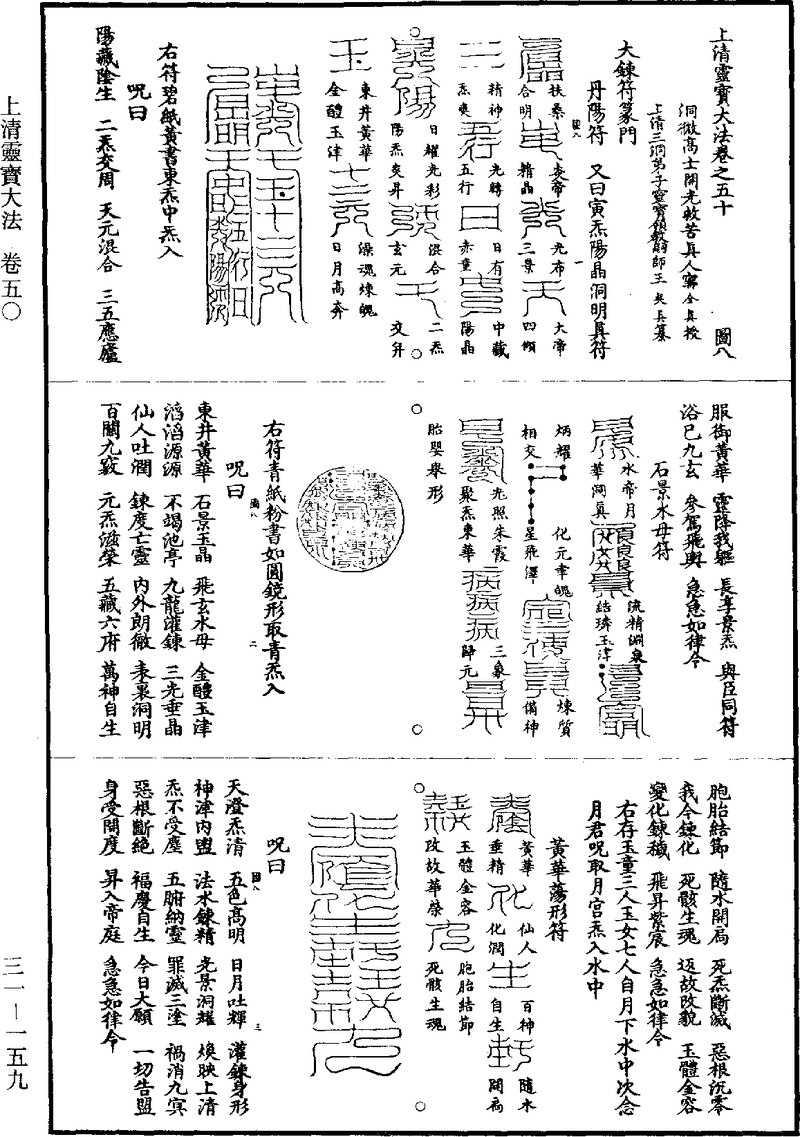 上清靈寶大法卷之五十　圖八
洞微高士開光救苦真人甯全真授
上清三洞弟子靈寶領教嗣師王契真纂
大鍊符篆門
丹陽符　又曰寅炁陽晶洞明真符
扶桑合明　炎帝精晶　光布三景　大帝四傾
精神炁爽　光轉五行　日有赤童　中藏陽晶
日耀光彩　陽炁炎昇　混合玄元　二炁交并
東井黃華　金醴玉津　澡魂煉魄　日月高奔
右符碧紙黃書東炁中炁入
呪曰
陽藏陰生　二炁交周　天元混合　三五應廬
服御黃華　靈降我軀　長享景炁　與臣同符
浴巳九玄　參駕飛輿　急急如律令
石景水母符
水帝月華洞真　流精淵泉　結璘玉津
炳耀相交　星飛澤　化元宰魄　煉質備神
光照朱霞　聚炁東華　三象歸元
胎嬰舉形
右符青紙粉書如圓鏡形取青炁入
呪曰
東井黃華　石景玉晶　飛玄水母　金醴玉津
滔滔源源　不竭池亭　九龍灌鍊　三光垂晶
仙人吐澗　鍊度亡靈　內外朗徹　表裏洞明
百關九竅　元炁滋榮　五藏六府　萬神自生
胞胎結節　隨水開扃　死炁斷滅　惡根沉零
我今鍊化　死骸生魂　返故改貌　玉體金容
變化鍊穢　飛昇紫宸　急急如律令
右存玉童三人玉女七人自月下水中次念
月君呪取月宮炁入水中
黃華蕩形符
黃華垂精　仙人化潤　百神自生　隨水開扃
玉體金容　改故華榮　胞胎結節　死骸生魂
呪曰
天澄炁清　五色高明　日月吐輝　灌鍊身形
神津內盟　法水鍊精　光景洞耀　煥映上清
炁不受塵　五腑納靈　罪滅三塗　禍消九冥
惡根斷絕　福慶自生　今日大願　一切告盟
身受開度　昇入帝庭　急急如律令
上清靈寶大法　卷五〇
三一—一五九